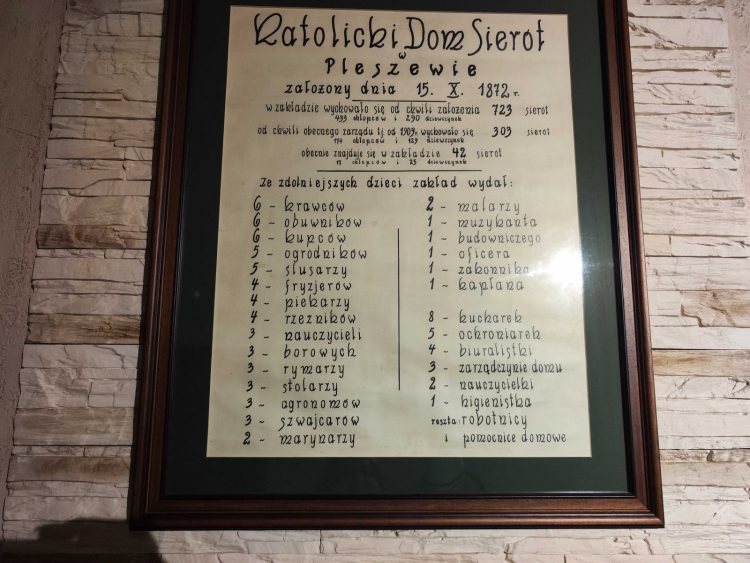 Katolicki Dom Sierot
w
Pleszewie
założony dnia 15. X. 1872 r.
w zakładzie wychowało się od chwili założenia 723 sierot
433 chłopców i 290 dziewczynek
od chwili obecnego zarządu tj od 1909r. wychowało się 303 sierot
174 chłopców i 129 dziewczynek
obecnie znajduje się w zakładzie 42 sierot
chłopców i dziewczynek
Ze zdolniejszych dzieci zakład wydał:
6 - krawców
6 - obuwników
6 - kupców
5 - ogrodników
5 - ślusarzy
4 - fryzjerów
4 - piekarzy
4 - rzeźników
3 - nauczycieli
3 - borowych
3 - rymarzy
3 - stolarzy
3 - agronomów
3 - szwajcarów
2 - marynarzy
2 - malarzy
1 - muzykanta
1 - budowniczego
1 - oficera
1 - zakonnika
1 - kapłana
8 - kucharek
5 - ochroniarek
4 - biuralistki
3 - zarządczynie domu
2 - nauczycielki
1 - higienistka
reszta: robotnicy
i pomocnice domowe